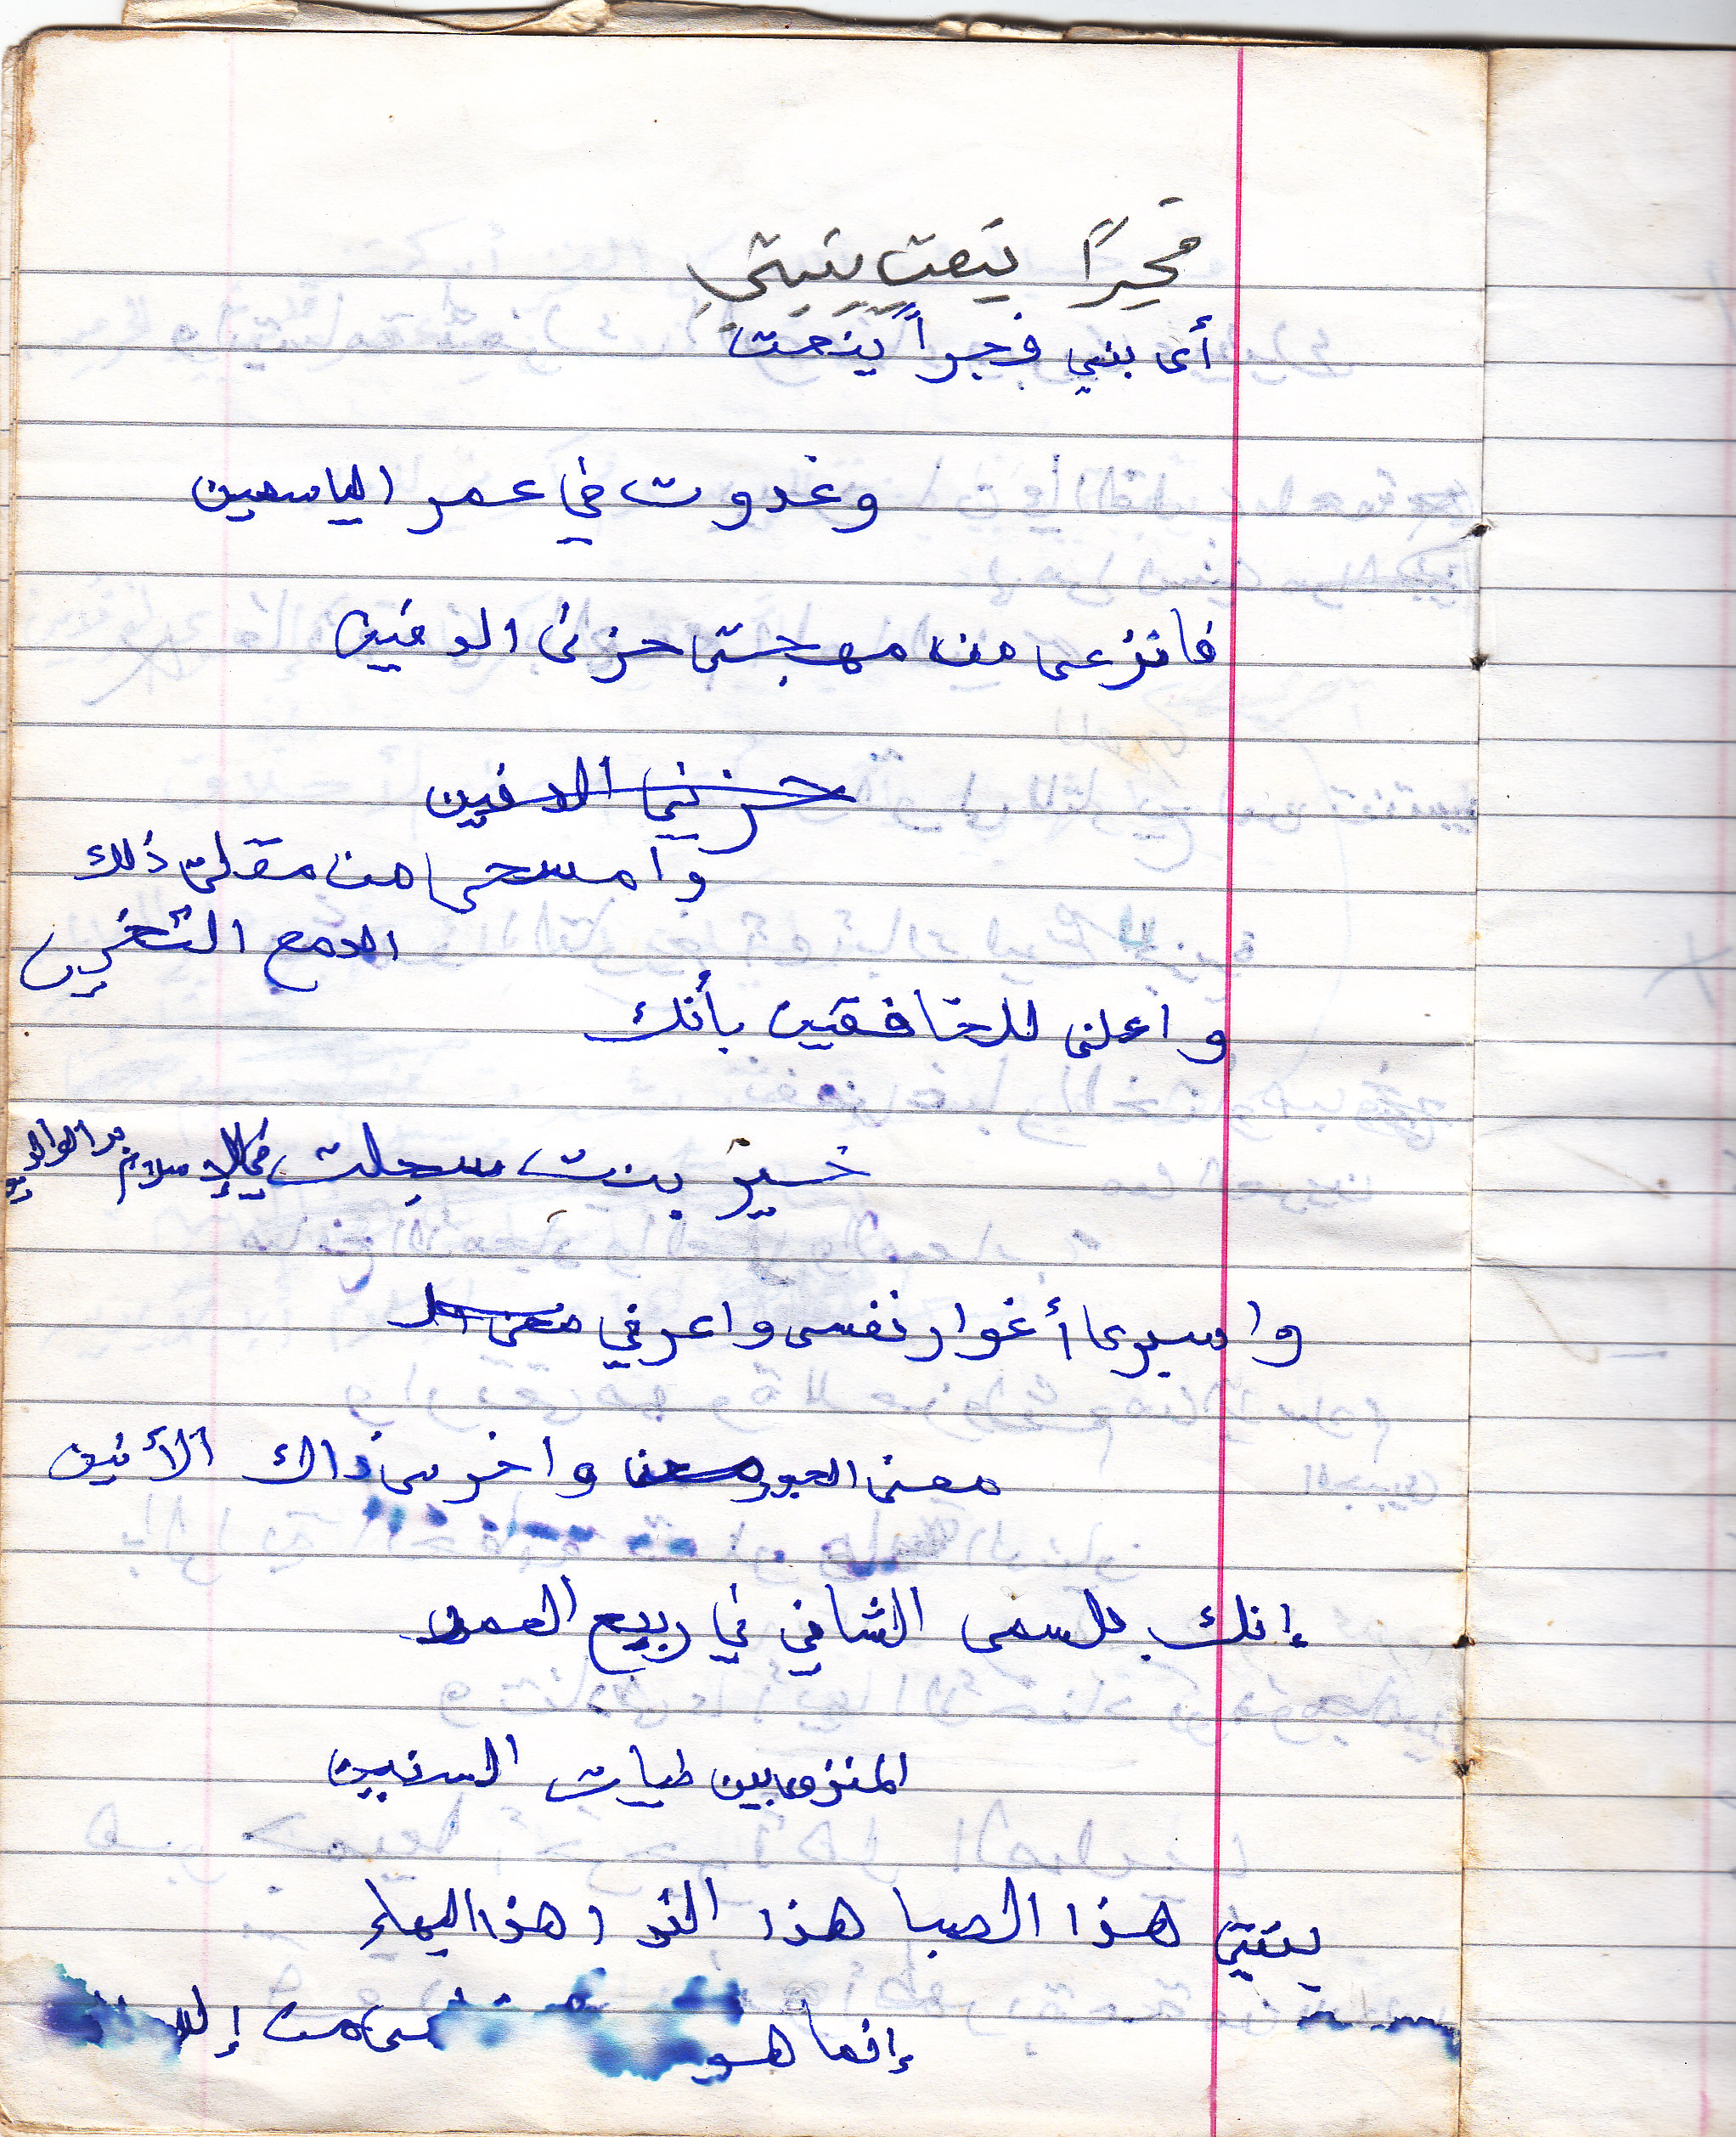 فجراً ينعت بنيتي
أى بنيتي فجراً ينعت
وغدوت في عمر الياسمين
فانزعى من مهجتى حزنى الدفين
حزني الدفين
وامسحى من مقلتى ذلك
الدمع السخين
واعلنى للخافقين بأنك
خير بنت سجلت في الإسلام بر الوالدين
واسبرى أغوار نفسى واعرفي معنى
معنى الحبور واخرسى ذاك الأنين
إنك بلسمى الشافي في ربيع العمر
المنزوى بين طيات السنين
بنيتي هذا الصبا هذا هذا البهاء
إنما هو من